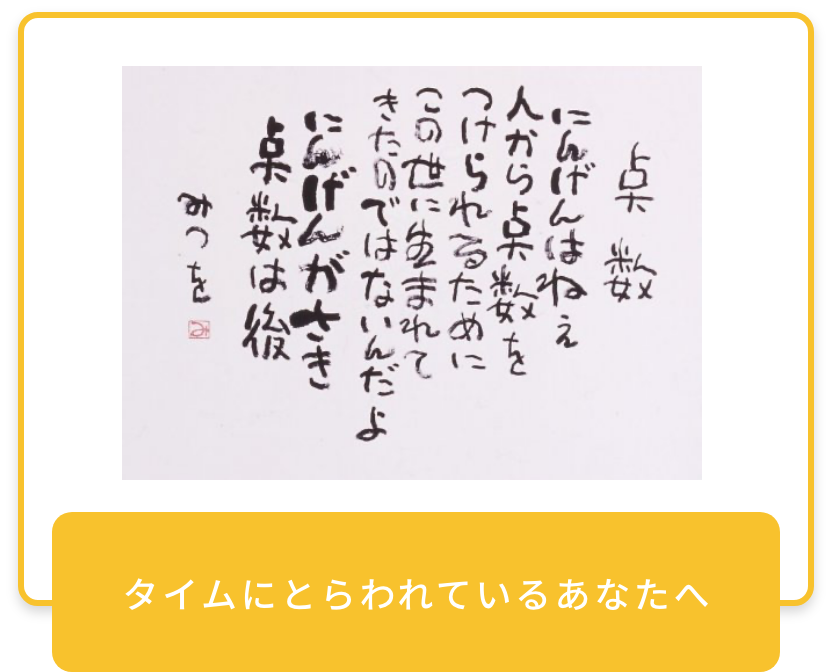 点数
にんげんはねぇ
人から点数を
つけられるために
この世に生まれて
きたのではないんだよ
にんげんがさき
点数は後
みつを
タイムにとらわれているあなたへ